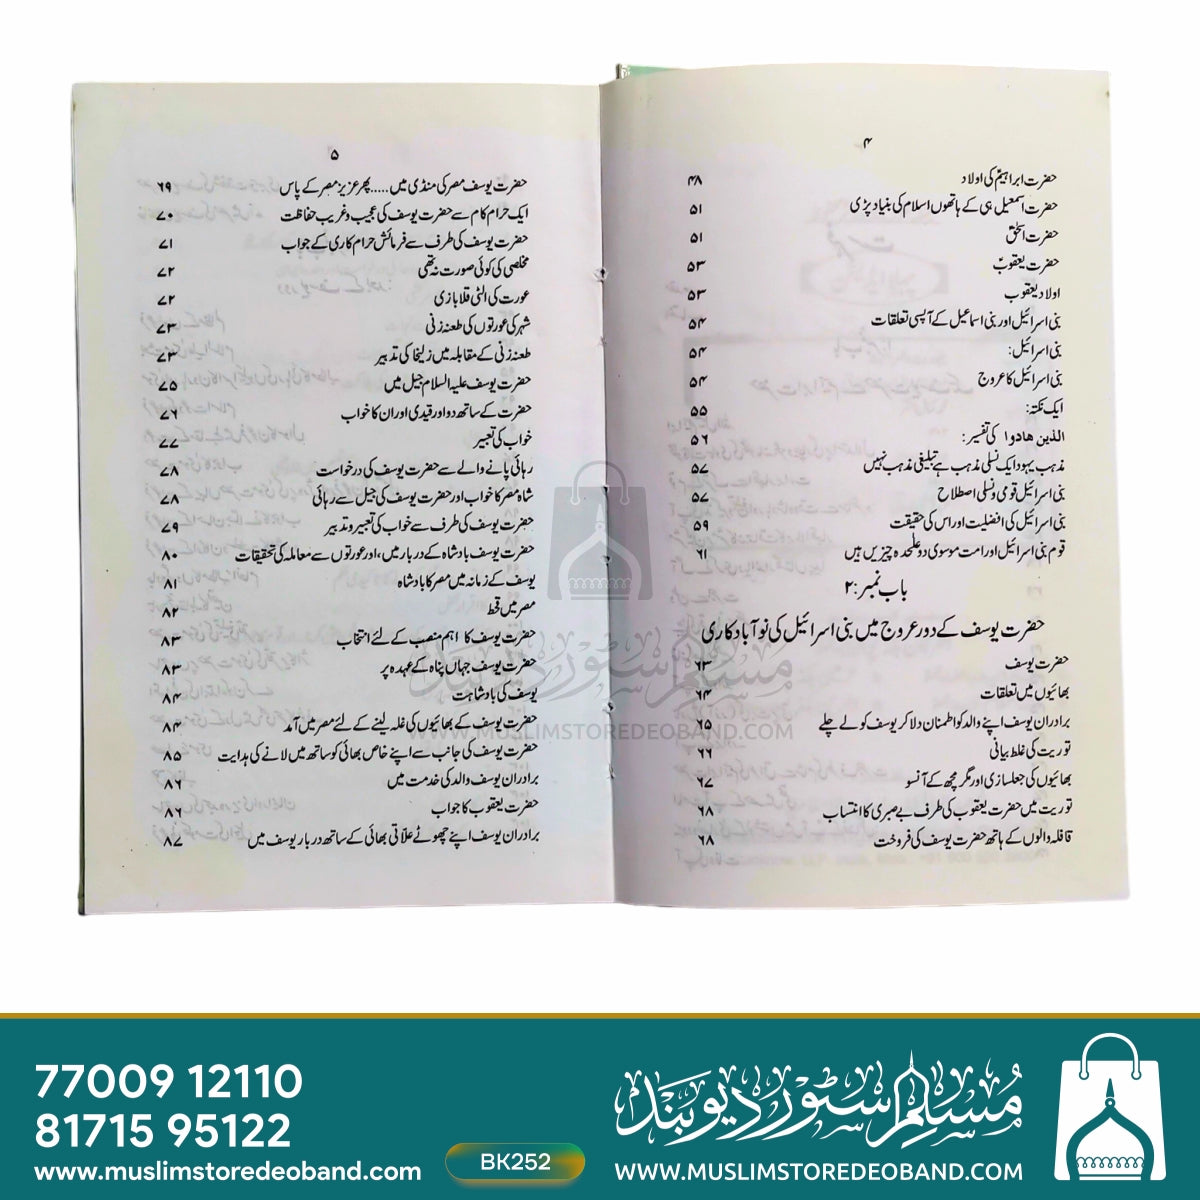 ۴
حضرت ابراہیمؑ کی اولاد ۴۸
حضرت اسمعیل ہی کے ہاتھوں اسلام کی بنیاد پڑی ۵۱
حضرت اسحٰقؑ ۵۱
حضرت یعقوبؑ ۵۳
اولاد یعقوب ۵۳
بنی اسرائیل اور بنی اسماعیل کے آپسی تعلقات ۵۴
بنی اسرائیل: ۵۴
بنی اسرائیل کا عروج ۵۴
ایک نکتہ: ۵۵
الذین ھادوا کی تفسیر: ۵۶
مذہب یہود ایک نسلی مذہب ہے تبلیغی مذہب نہیں ۵۷
بنی اسرائیل قومی و نسلی اصطلاح ۵۷
بنی اسرائیل کی افضلیت اور اس کی حقیقت ۵۹
قوم بنی اسرائیل اور امت موسوی دو علٰحدہ چیزیں ہیں ۶۱
باب نمبر: ۲
حضرت یوسف کے دور عروج میں بنی اسرائیل کی نو آباد کاری
حضرت یوسف ۶۳
بھائیوں میں تعلقات ۶۴
برادران یوسف اپنے والد کو اطمنان دلا کر یوسف کو لے چلے ۶۵
توریت کی غلط بیانی ۶۶
بھائیوں کی جعلسازی اور مگر مچھ کے آنسو ۶۷
توریت میں حضرت یعقوب کی طرف بے صبری کا انتساب ۶۸
قافلہ والوں کے ہاتھ حضرت یوسف کی فروخت ۶۸
۵
حضرت یوسف مصر کی منڈی میں ..... پھر عزیز مصر کے پاس ۶۹
ایک حرام کام سے حضرت یوسف کی عجیب و غریب حفاظت ۷۰
حضرت یوسف کی طرف سے فرمائش حرام کاری کے جواب ۷۱
مخلصی کی کوئی صورت نہ تھی ۷۲
عورت کی الٹی قلابازی ۷۲
شہر کی عورتوں کی طعنہ زنی ۷۳
طعنہ زنی کے مقابلہ میں زلیخا کی تدبیر ۷۳
حضرت یوسف علیہ السلام جیل میں ۷۵
حضرت کے ساتھ دو اور قیدی اور ان کا خواب ۷۶
خواب کی تعبیر ۷۷
رہائی پانے والے سے حضرت یوسف کی درخواست ۷۸
شاہ مصر کا خواب اور حضرت یوسف کی جیل سے رہائی ۷۸
حضرت یوسف کی طرف سے خواب کی تعبیر و تدبیر ۷۹
حضرت یوسف بادشاہ کے دربار میں، اور عورتوں سے معاملہ کی تحقیقات ۸۰
یوسف کے زمانہ میں مصر کا بادشاہ ۸۱
مصر میں قحط ۸۲
حضرت یوسف کا اہم منصب کے لئے انتخاب ۸۳
حضرت یوسف جہاں پناہ کے عہدہ پر ۸۳
یوسف کی بادشاہت ۸۴
حضرت یوسف کے بھائیوں کی غلہ لینے کے لئے مصر میں آمد ۸۴
حضرت یوسف کی جانب سے اپنے خاص بھائی کو ساتھ میں لانے کی ہدایت ۸۵
برادران یوسف والد کی خدمت میں ۸۶
حضرت یعقوب کا جواب ۸۶
برادران یوسف اپنے چھوٹے علاتی بھائی کے ساتھ دربار یوسف میں ۸۷
مسلم سٹور دیوبند
WWW.MUSLIMSTOREDEOBAND.COM
77009 12110
81715 95122
www.muslimstoredeoband.com
BK252
مسلم سٹور دیوبند
WWW.MUSLIMSTOREDEOBAND.COM